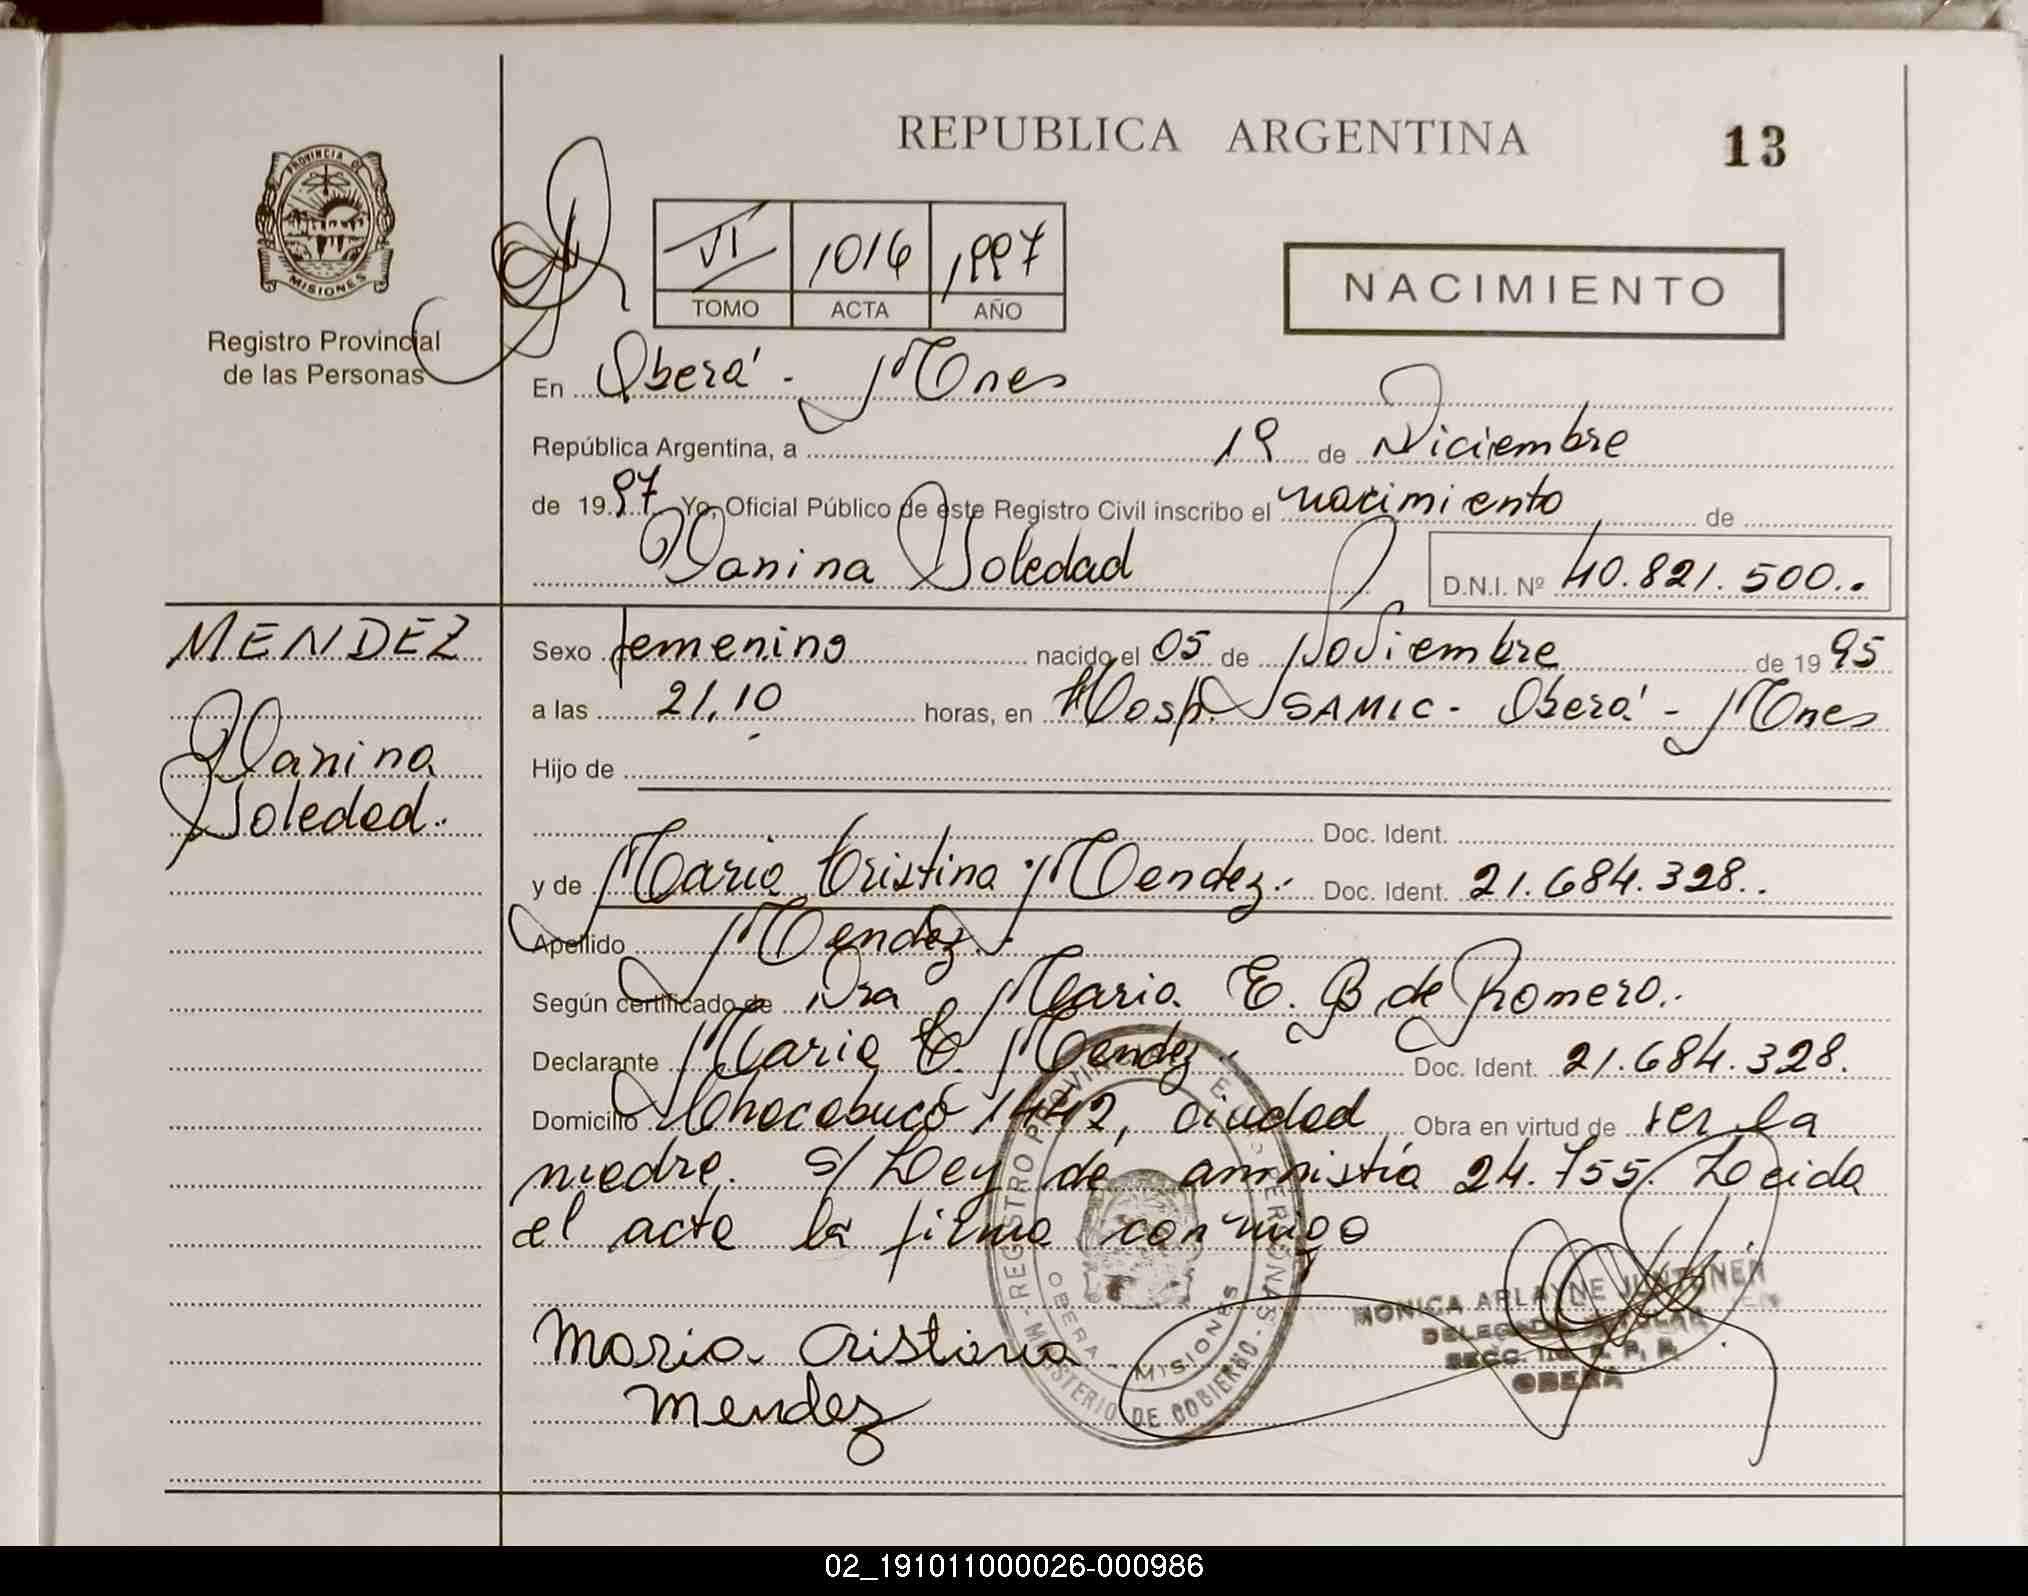 REPUBLICA ARGENTINA
13
PROVINCIA DE
MISIONES
Registro Provincial
de las Personas
VI 1016 1997
TOMO ACTA AÑO
NACIMIENTO
En Oberá - Mnes
República Argentina, a 19 de Diciembre
de 1997 Yo, Oficial Público de este Registro Civil inscribo el nacimiento de
Vanina Soledad
D.N.I. Nº 40.821.500..
MENDEZ
Vanina
Soledad..
Sexo femenino nacido el 05 de Noviembre de 1995
a las 21,10 horas, en Hosp. SAMIC - Oberá - Mnes
Hijo de
Doc. Ident.
y de Maria Cristina Mendez.- Doc. Ident. 21.684.328..
Apellido Mendez.-
Según certificado de Dra Maria E. B de Romero..
Declarante Maria C. Mendez.- Doc. Ident. 21.684.328.
Domicilio Chacabuco 1442, ciudad Obra en virtud de ser la
madre. s/ Ley de amnistía 24.755. Leida
el acta la firma conmigo
Maria Cristina
Mendez
REGISTRO PROVINCIAL DE LAS PERSONAS - MINISTERIO DE GOBIERNO -
OBERA - MISIONES
MONICA ARLAYNE JUNTANEN
OBERA
02_191011000026-000986